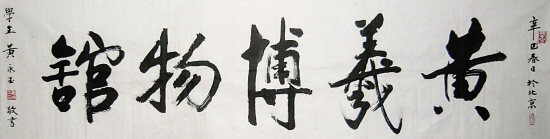 辛巳春日於北京
黄羲博物舘
學生黄永玉敬書